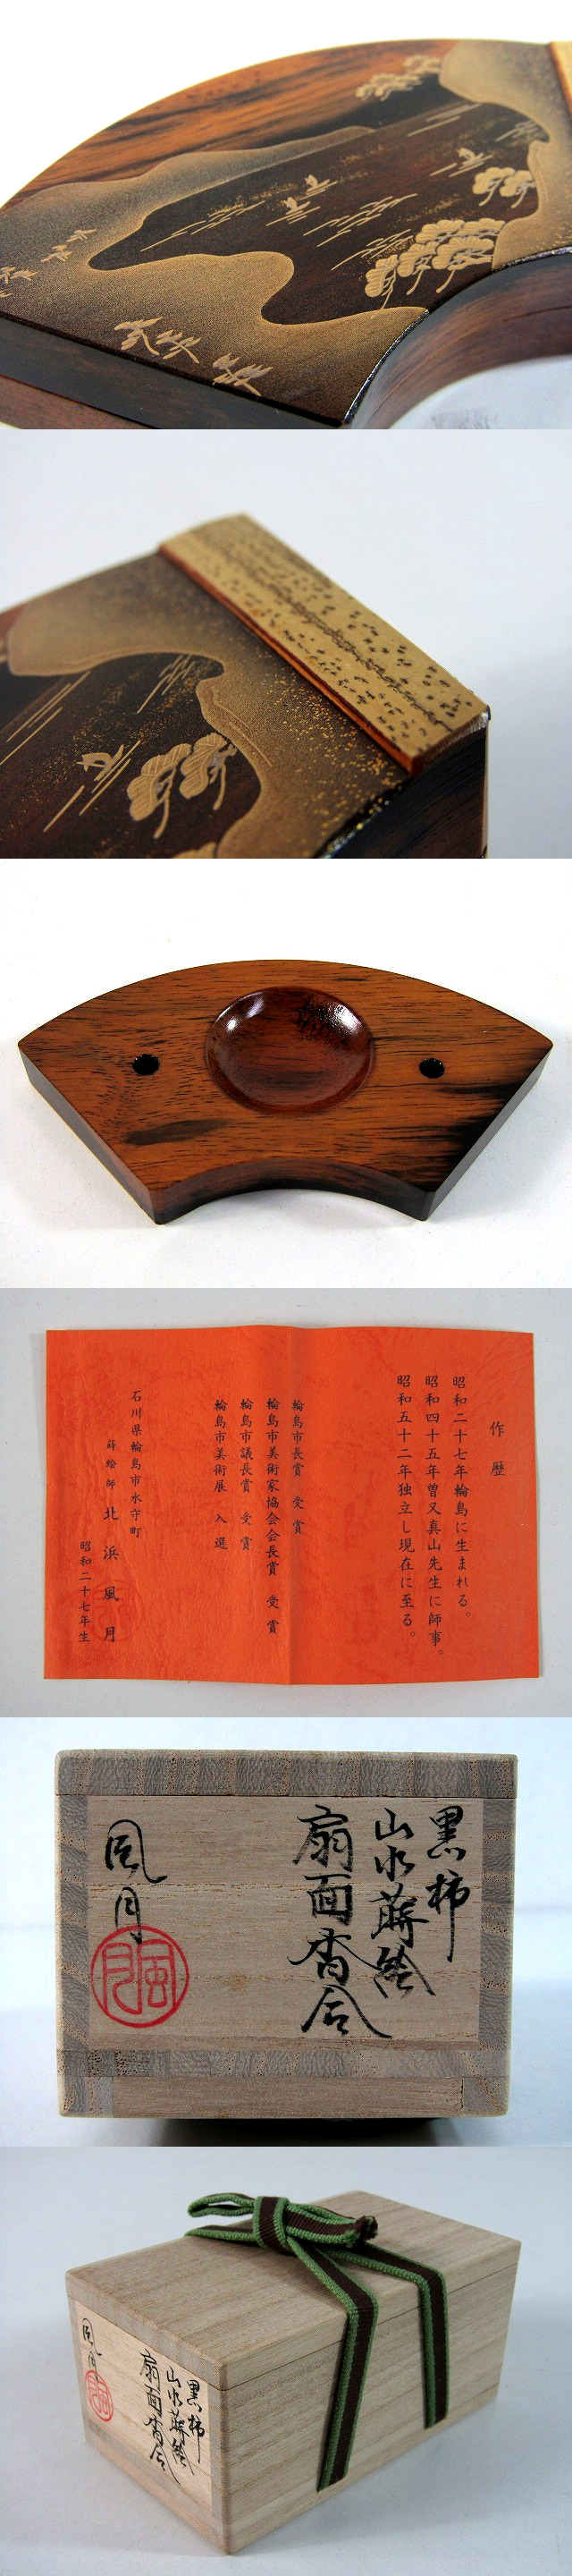 作歴
昭和二十七年輪島に生まれる。
昭和四十五年曽又真山先生に師事。
昭和五十二年独立し現在に至る。
輪島市長賞 受賞
輪島市美術家協会会長賞 受賞
輪島市議長賞 受賞
輪島市美術展 入選
石川県輪島市水守町
蒔絵師 北浜風月
昭和二十七年生
黒柿
山水蒔絵
扇面香合
風月
風月
黒柿
山水蒔絵
扇面香合
風月